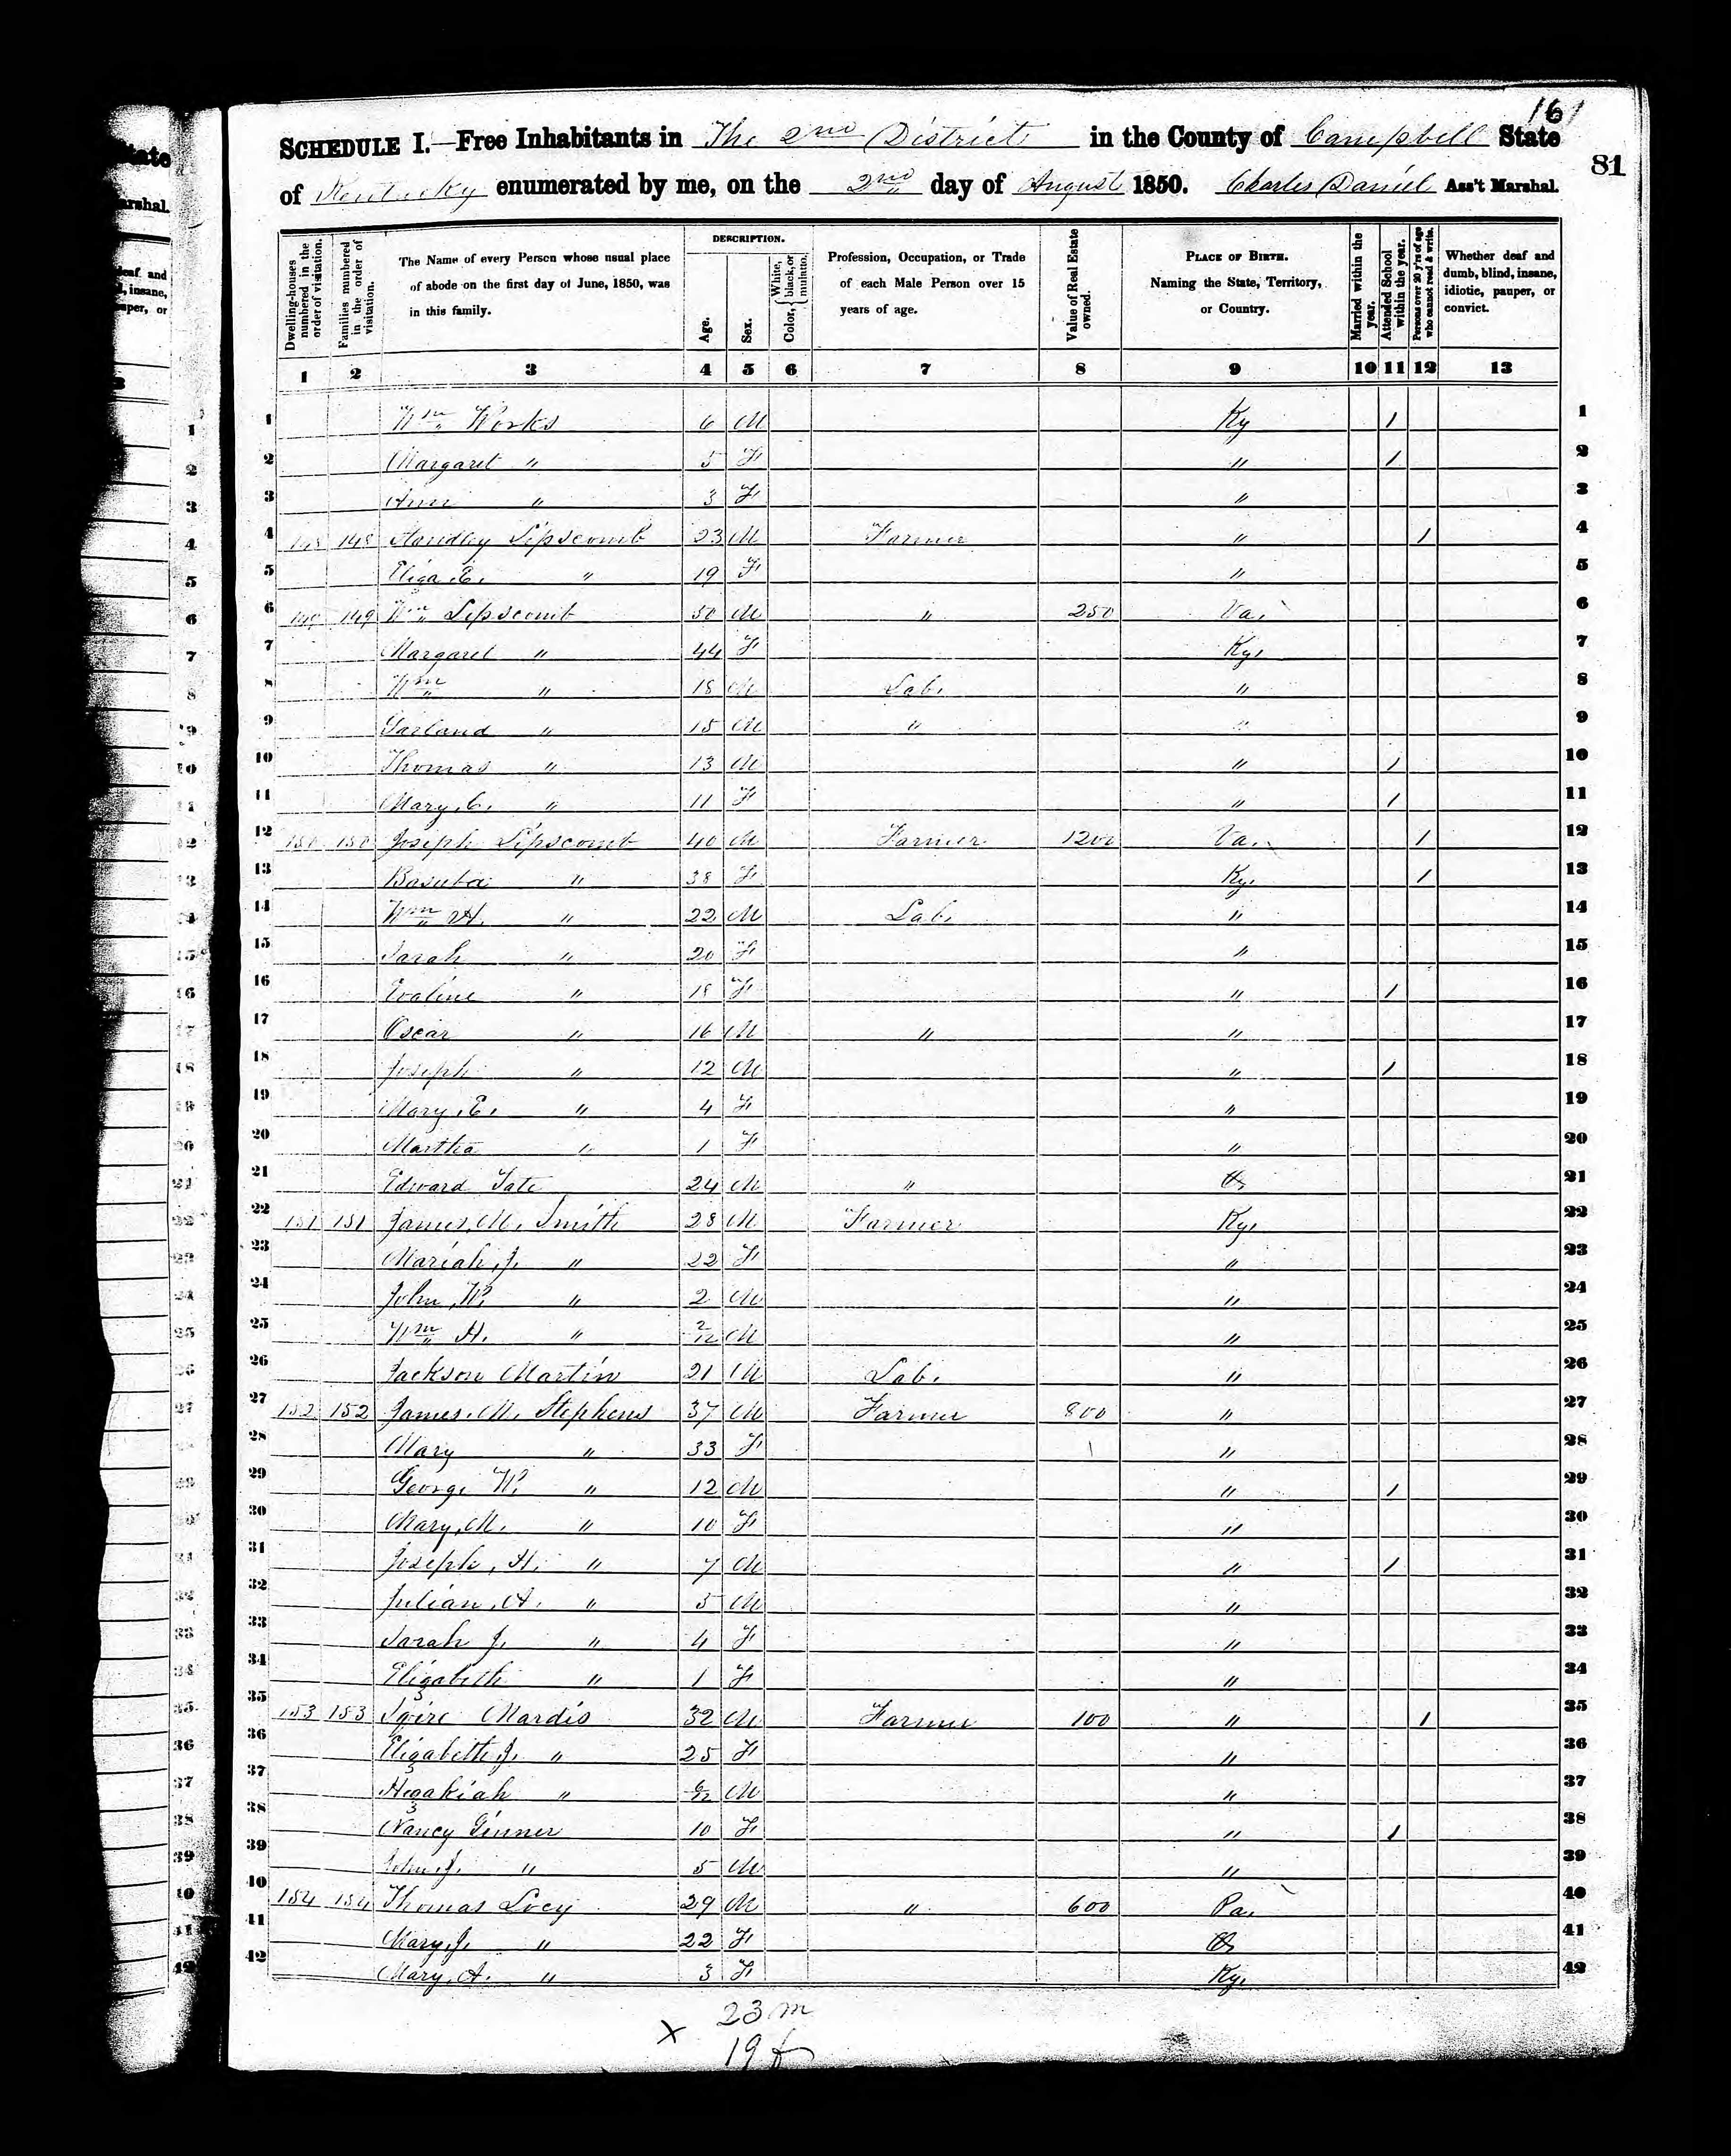 161
81
SCHEDULE I.—Free Inhabitants in The 2nd District in the County of Campbell State
of Kentucky enumerated by me, on the 2nd day of August 1850. Charles Daniel Ass't Marshal.
Dwelling-houses numbered in the order of visitation.
Families numbered in the order of visitation.
The Name of every Person whose usual place of abode on the first day of June, 1850, was in this family.
DESCRIPTION.
Age.
Sex.
Color, { White, black, or mulatto.
Profession, Occupation, or Trade of each Male Person over 15 years of age.
Value of Real Estate owned.
PLACE OF BIRTH. Naming the State, Territory, or Country.
Married within the year.
Attended School within the year.
Persons over 20 y'rs of age who cannot read & write.
Whether deaf and dumb, blind, insane, idiotic, pauper, or convict.
1 2 3 4 5 6 7 8 9 10 11 12 13
1 Wm Works 6 M Ky 1 1
2 Margaret " 5 F " 1 2
3 Ann " 3 F " 3
4 148 148 Handley Lipscomb 23 M Farmer " 1 4
5 Eliza E. " 19 F " 5
6 149 149 Wm Lipscomb 50 M " 250 Va. 6
7 Margaret " 44 F Ky. 7
8 Wm " 18 M Lab. " 8
9 Garland " 15 M " " 9
10 Thomas " 13 M " 1 10
11 Mary C. " 11 F " 1 11
12 150 150 Joseph Lipscomb 40 M Farmer 1200 Va. 1 12
13 " 38 F Ky. 1 13
14 Wm H. " 22 M Lab. " 14
15 Sarah " 20 F " 15
16 Evaline " 18 F " 1 16
17 Oscar " 16 M " " 17
18 Joseph " 12 M " 1 18
19 Mary E. " 4 F " 19
20 Martha " 1 F " 20
21 Edward Tate 24 M " O 21
22 151 151 James M. Smith 28 M Farmer Ky. 22
23 Mariah J. " 22 F " 23
24 John W. " 2 M " 24
25 Wm H. " 2/12 M " 25
26 Jackson Martin 21 M Lab. " 26
27 152 152 James M. Stephens 37 M Farmer 800 " 27
28 Mary " 33 F " 28
29 George W. " 12 M " 1 29
30 Mary M. " 10 F " 30
31 Joseph H. " 7 M " 1 31
32 Julian A. " 5 M " 32
33 Sarah J. " 4 F " 33
34 Elizabeth " 1 F " 34
35 153 153 Sqire Mardis 32 M Farmer 100 " 1 35
36 Elizabeth J. " 25 F " 36
37 Hezakiah " M " 37
38 Nancy Ginner 10 F " 1 38
39 John J. " 5 M " 39
40 154 154 Thomas Locy 29 M " 600 Pa. 40
41 Mary J. " 22 F O 41
42 Mary A. " 3 F Ky. 42
x 23 m
19 f